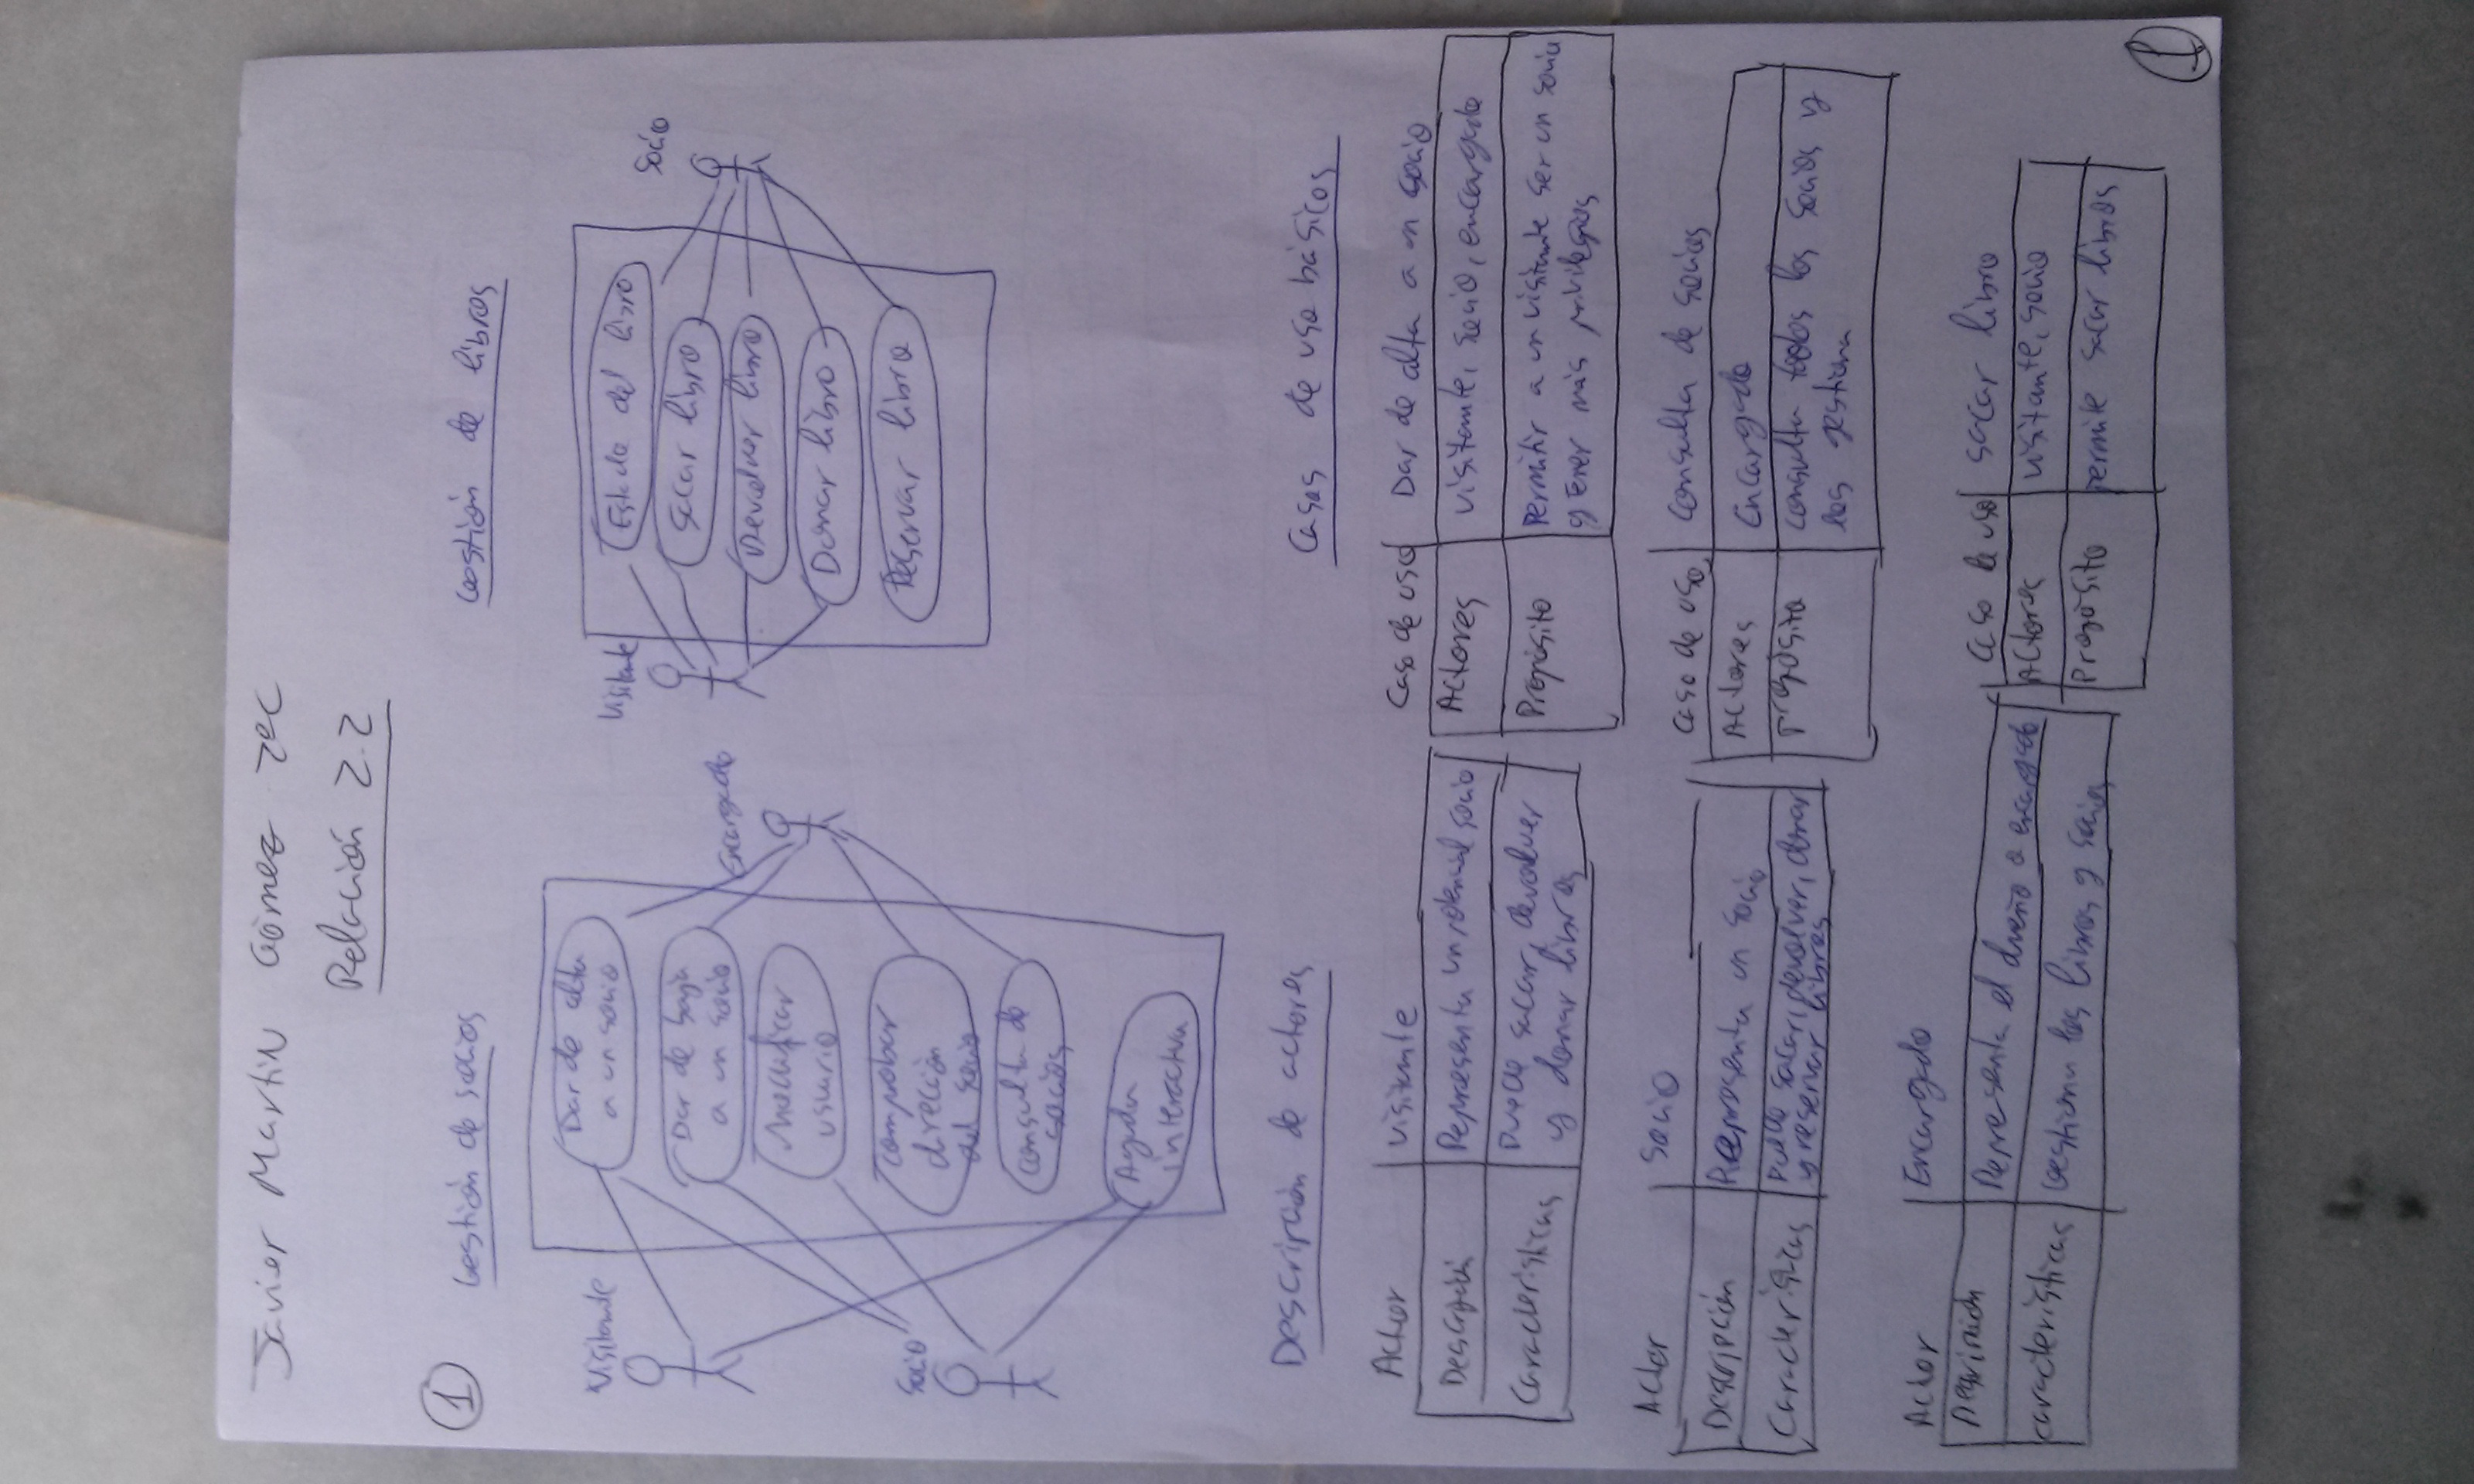 Javier Martín Gómez 2ºC
Relación 2.2
1
Gestión de socios
Visitante
Dar de alta
a un socio
Dar de baja
a un socio
Modificar
usuario
comprobar
dirección
del socio
consulta de
socios
Ayuda
interactiva
Encargado
Socio
Gestión de libros
Visitante
Estado del libro
Sacar libro
Devolver libro
Donar libro
Reservar libro
Socio
Descripción de actores
Actor Visitante
Descripción Representa un potencial socio
Características Puede sacar, devolver
y donar libros
Actor Socio
Descripción Representa un socio
Características Puede sacar, devolver, donar
y reservar libros
Actor Encargado
Descripción Representa el dueño o encargado
características Gestiona los libros y socios
Casos de uso básicos
Caso de uso Dar de alta a un socio
Actores visitante, socio, encargado
Propósito Permitir a un visitante ser un socio
y tener más privilegios
Caso de uso consulta de socios
Actores Encargado
propósito consulta todos los socios y
los gestiona
Caso de uso sacar libro
Actores visitante, socio
Propósito permite sacar libros
1